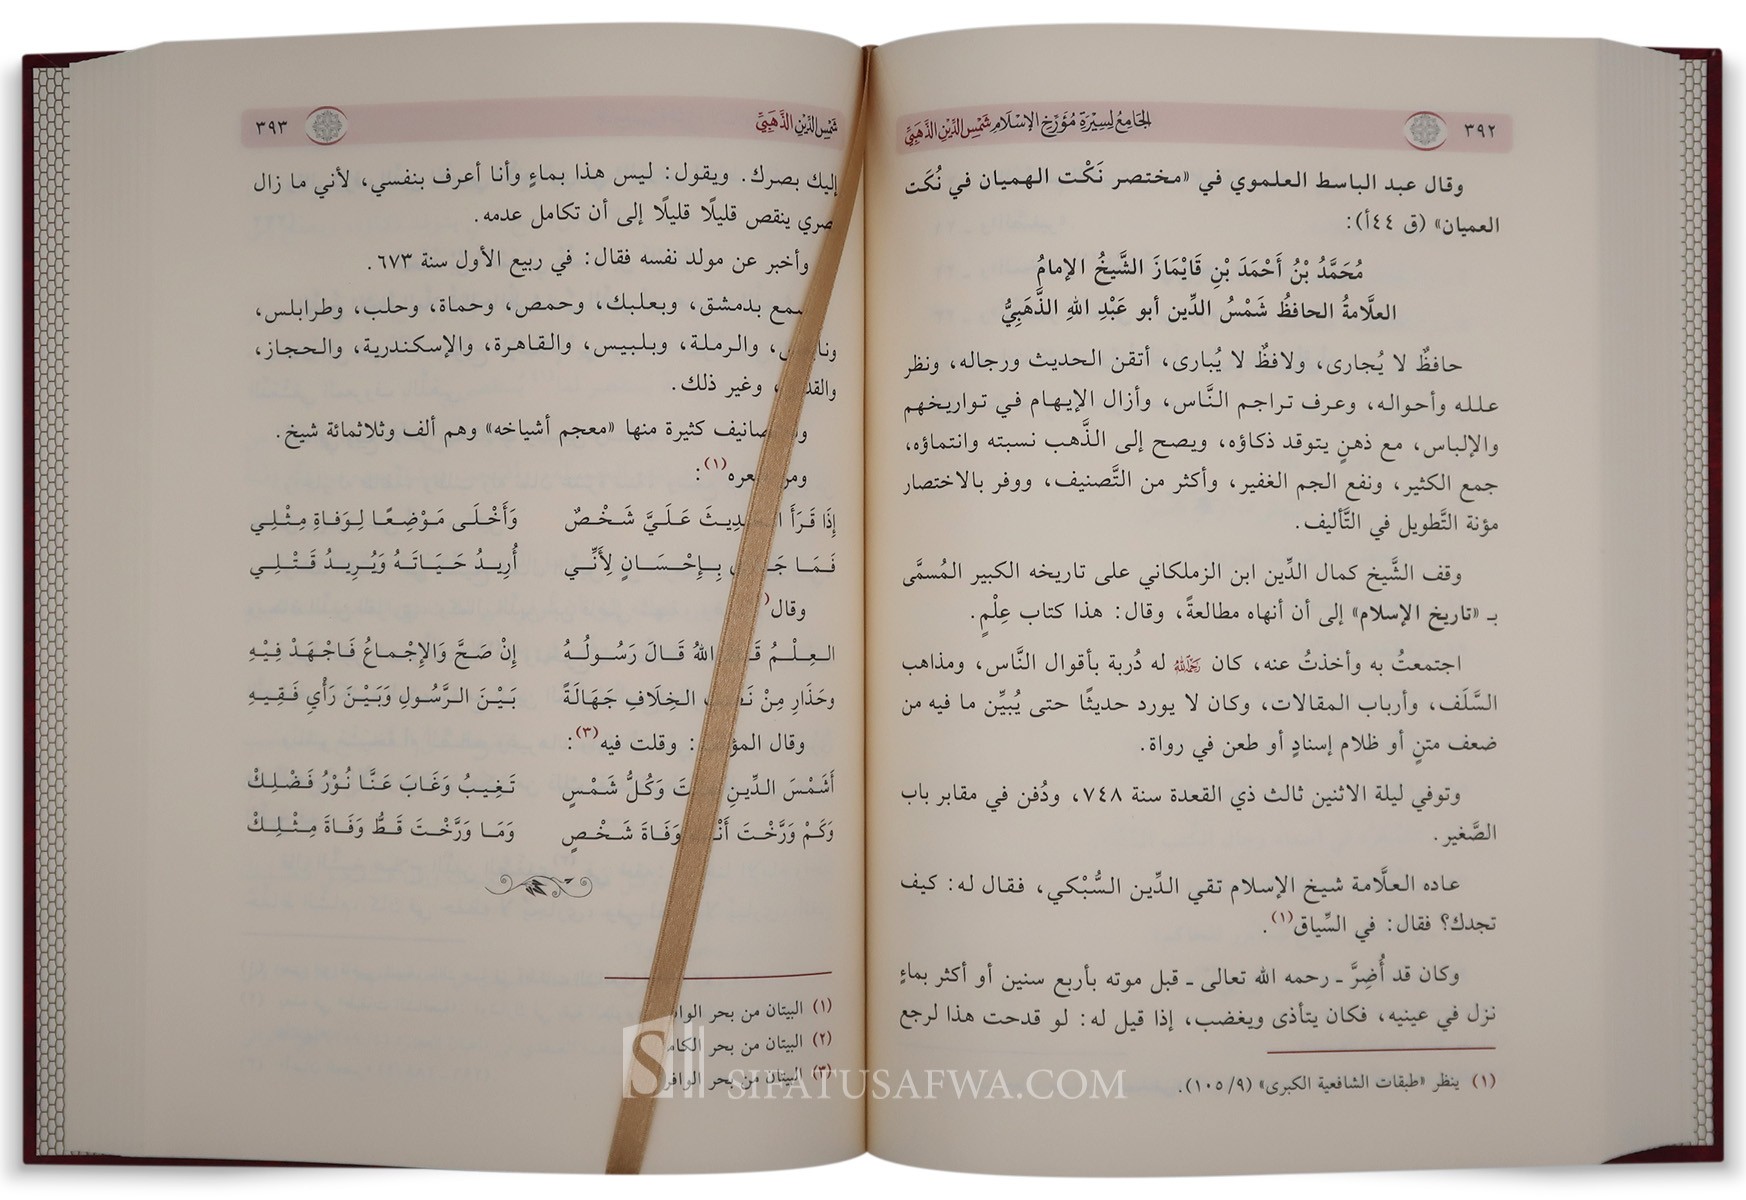 ٣٩٢
الجامع لسيرة مؤرخ الإسلام شمس الدين الذهبي
وقال عبد الباسط العلموي في «مختصر نَكْت الهميان في نُكَت
العميان» (ق ٤٤أ):
مُحَمَّدُ بْنُ أَحْمَدَ بْنِ قَايْمَازَ الشَّيخُ الإمامُ
العلَّامةُ الحافظُ شَمْسُ الدِّين أبو عَبْدِ اللهِ الذَّهَبِيُّ
حافظٌ لا يُجارى، ولافظٌ لا يُبارى، أتقن الحديث ورجاله، ونظر
علله وأحواله، وعرف تراجم النَّاس، وأزال الإيهام في تواريخهم
والإلباس، مع ذهنٍ يتوقد ذكاؤه، ويصح إلى الذَّهب نسبته وانتماؤه،
جمع الكثير، ونفع الجم الغفير، وأكثر من التَّصنيف، ووفر بالاختصار
مؤنة التَّطويل في التَّأليف.
وقف الشَّيخ كمال الدِّين ابن الزملكاني على تاريخه الكبير المُسمَّى
بـ «تاريخ الإسلام» إلى أن أنهاه مطالعةً، وقال: هذا كتاب عِلْمٍ.
اجتمعتُ به وأخذتُ عنه، كان رَحِمَهُ اللهُ له دُربة بأقوال النَّاس، ومذاهب
السَّلَف، وأرباب المقالات، وكان لا يورد حديثًا حتى يُبيِّن ما فيه من
ضعف متنٍ أو ظلام إسنادٍ أو طعن في رواة.
وتوفي ليلة الاثنين ثالث ذي القعدة سنة ٧٤٨، ودُفن في مقابر باب
الصَّغير.
عاده العلَّامة شيخ الإسلام تقي الدِّين السُّبْكي، فقال له: كيف
تجدك؟ فقال: في السِّياق(١).
وكان قد أُضِرَّ ـ رحمه الله تعالى ـ قبل موته بأربع سنين أو أكثر بماءٍ
نزل في عينيه، فكان يتأذى ويغضب، إذا قيل له: لو قدحت هذا لرجع
(١) ينظر «طبقات الشافعية الكبرى» (٩/ ١٠٥).
شمس الدين الذهبي
٣٩٣
إليك بصرك. ويقول: ليس هذا بماءٍ وأنا أعرف بنفسي، لأني ما زال
بصري ينقص قليلًا قليلًا إلى أن تكامل عدمه.
وأخبر عن مولد نفسه فقال: في ربيع الأول سنة ٦٧٣.
سمع بدمشق، وبعلبك، وحمص، وحماة، وحلب، وطرابلس،
والرملة، وبلبيس، والقاهرة، والإسكندرية، والحجاز،
وغير ذلك.
كثيرة منها «معجم أشياخه» وهم ألف وثلاثمائة شيخ.
ومن شعره(١):
إِذَا قَرَأَ الحَدِيثَ عَلَيَّ شَخْصٌ وَأَخْلَى مَوْضِعًا لِوَفَاةِ مِثْلِي
فَمَا بِإِحْسَانٍ لِأَنِّي أُرِيدُ حَيَاتَهُ وَيُرِيدُ قَتْلِي
وقال
العِلْمُ قَالَ اللهُ قَالَ رَسُولُهُ إِنْ صَحَّ وَالإِجْمَاعُ فَاجْهَدْ فِيْهِ
وحَذَارِ مِنْ الخِلَافِ جَهَالَةً بَيْنَ الرَّسُولِ وَبَيْنَ رَأْيِ فَقِيهِ
وقال وقلت فيه(٣):
أَشَمْسَ الدِّينِ وَكُلُّ شَمْسٍ تَغِيبُ وَغَابَ عَنَّا نُوْرُ فَضْلِكْ
وَكَمْ وَرَّخْتَ أَنْتَ وَفَاةَ شَخْصٍ وَمَا وَرَّخْتَ قَطُّ وَفَاةَ مِثْلِكْ
(١) البيتان من بحر الوافر
(٢) البيتان من بحر
(٣) البيتان من بحر الوافر
SIFATUSAFWA.COM